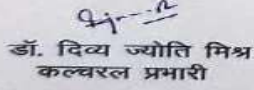 डॉ. दिव्य ज्योति मिश्र
कल्चरल प्रभारी